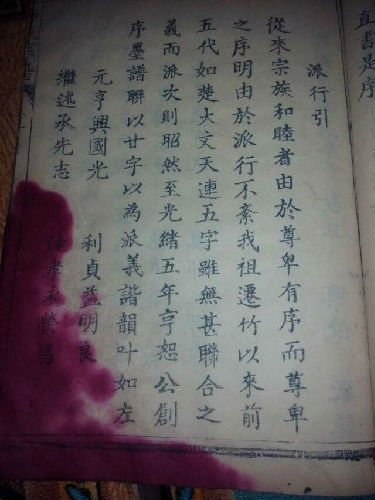 直書是序
派行引
從來宗族和睦者由於尊卑有序而尊卑
之序明由於派行不紊我祖遷竹以來前
五代如楚大文天連五字雖無甚聯合之
義而派次則昭然至光緒五年亨恕公創
序墨譜聯以廿字以為派義諧韻叶如左
元亨興國光 利貞益明良
繼述承先志 孝承榮昌